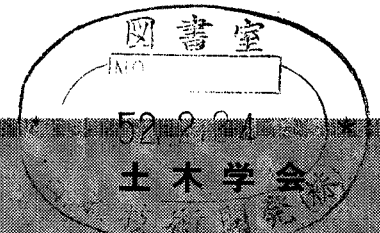 図書室
NO
52.2.24
土木学会
開発(株)